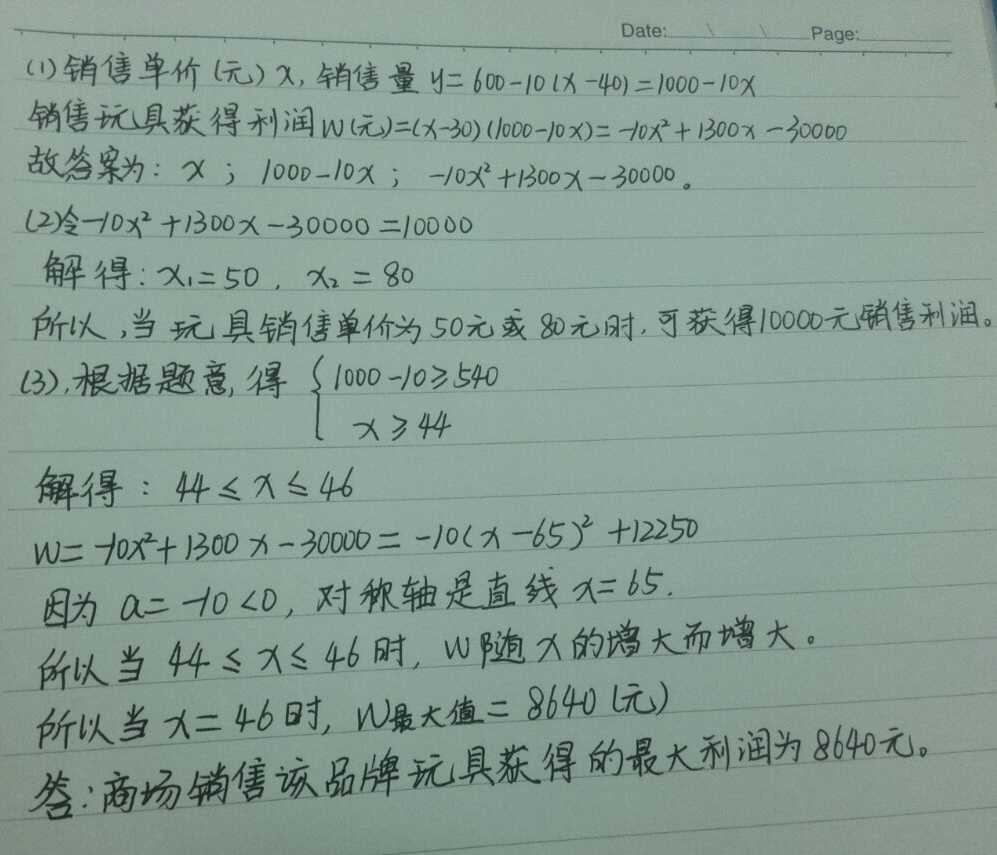 Date: \ \ Page:
(1)销售单价(元)x,销售量 y=600-10(x-40)=1000-10x
销售玩具获得利润W(元)=(x-30)(1000-10x)=-10x²+1300x-30000
故答案为:x;1000-10x;-10x²+1300x-30000。
(2)令-10x²+1300x-30000=10000
解得:x₁=50,x₂=80
所以,当玩具销售单价为50元或80元时,可获得10000元销售利润。
(3).根据题意,得 { 1000-10≥540
x≥44
解得:44≤x≤46
W=-10x²+1300x-30000=-10(x-65)²+12250
因为 a=-10<0,对称轴是直线 x=65.
所以当 44≤x≤46时,W随x的增大而增大。
所以当x=46时,W最大值=8640(元)
答:商场销售该品牌玩具获得的最大利润为8640元。